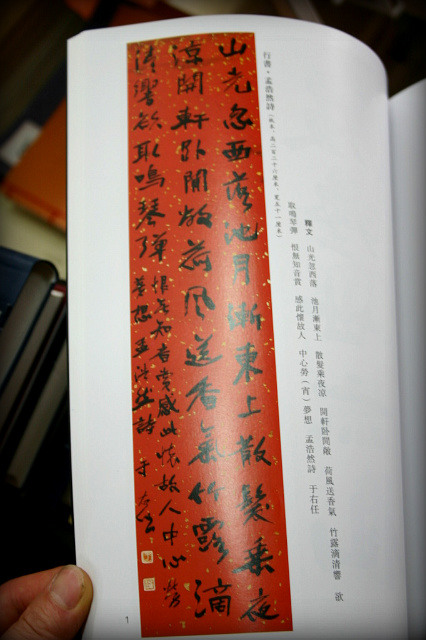 釋文　山光忽西落　池月漸東上　散髮乘夜凉　開軒卧閒敞　荷風送香氣　竹露滴清響　欲
取鳴琴彈　恨無知音賞　感此懷故人　中心勞（宵）夢想　孟浩然詩　于右任
行書・孟浩然詩（紙本，高二百二十六厘米，寬五十一厘米）
山光忽西落池月漸東上散髮乘夜
涼開軒卧閒敞荷風送香氣竹露滴
清響欲取鳴琴彈
恨無知音賞感此懷故人中心勞
夢想孟浩然詩 于右任
1